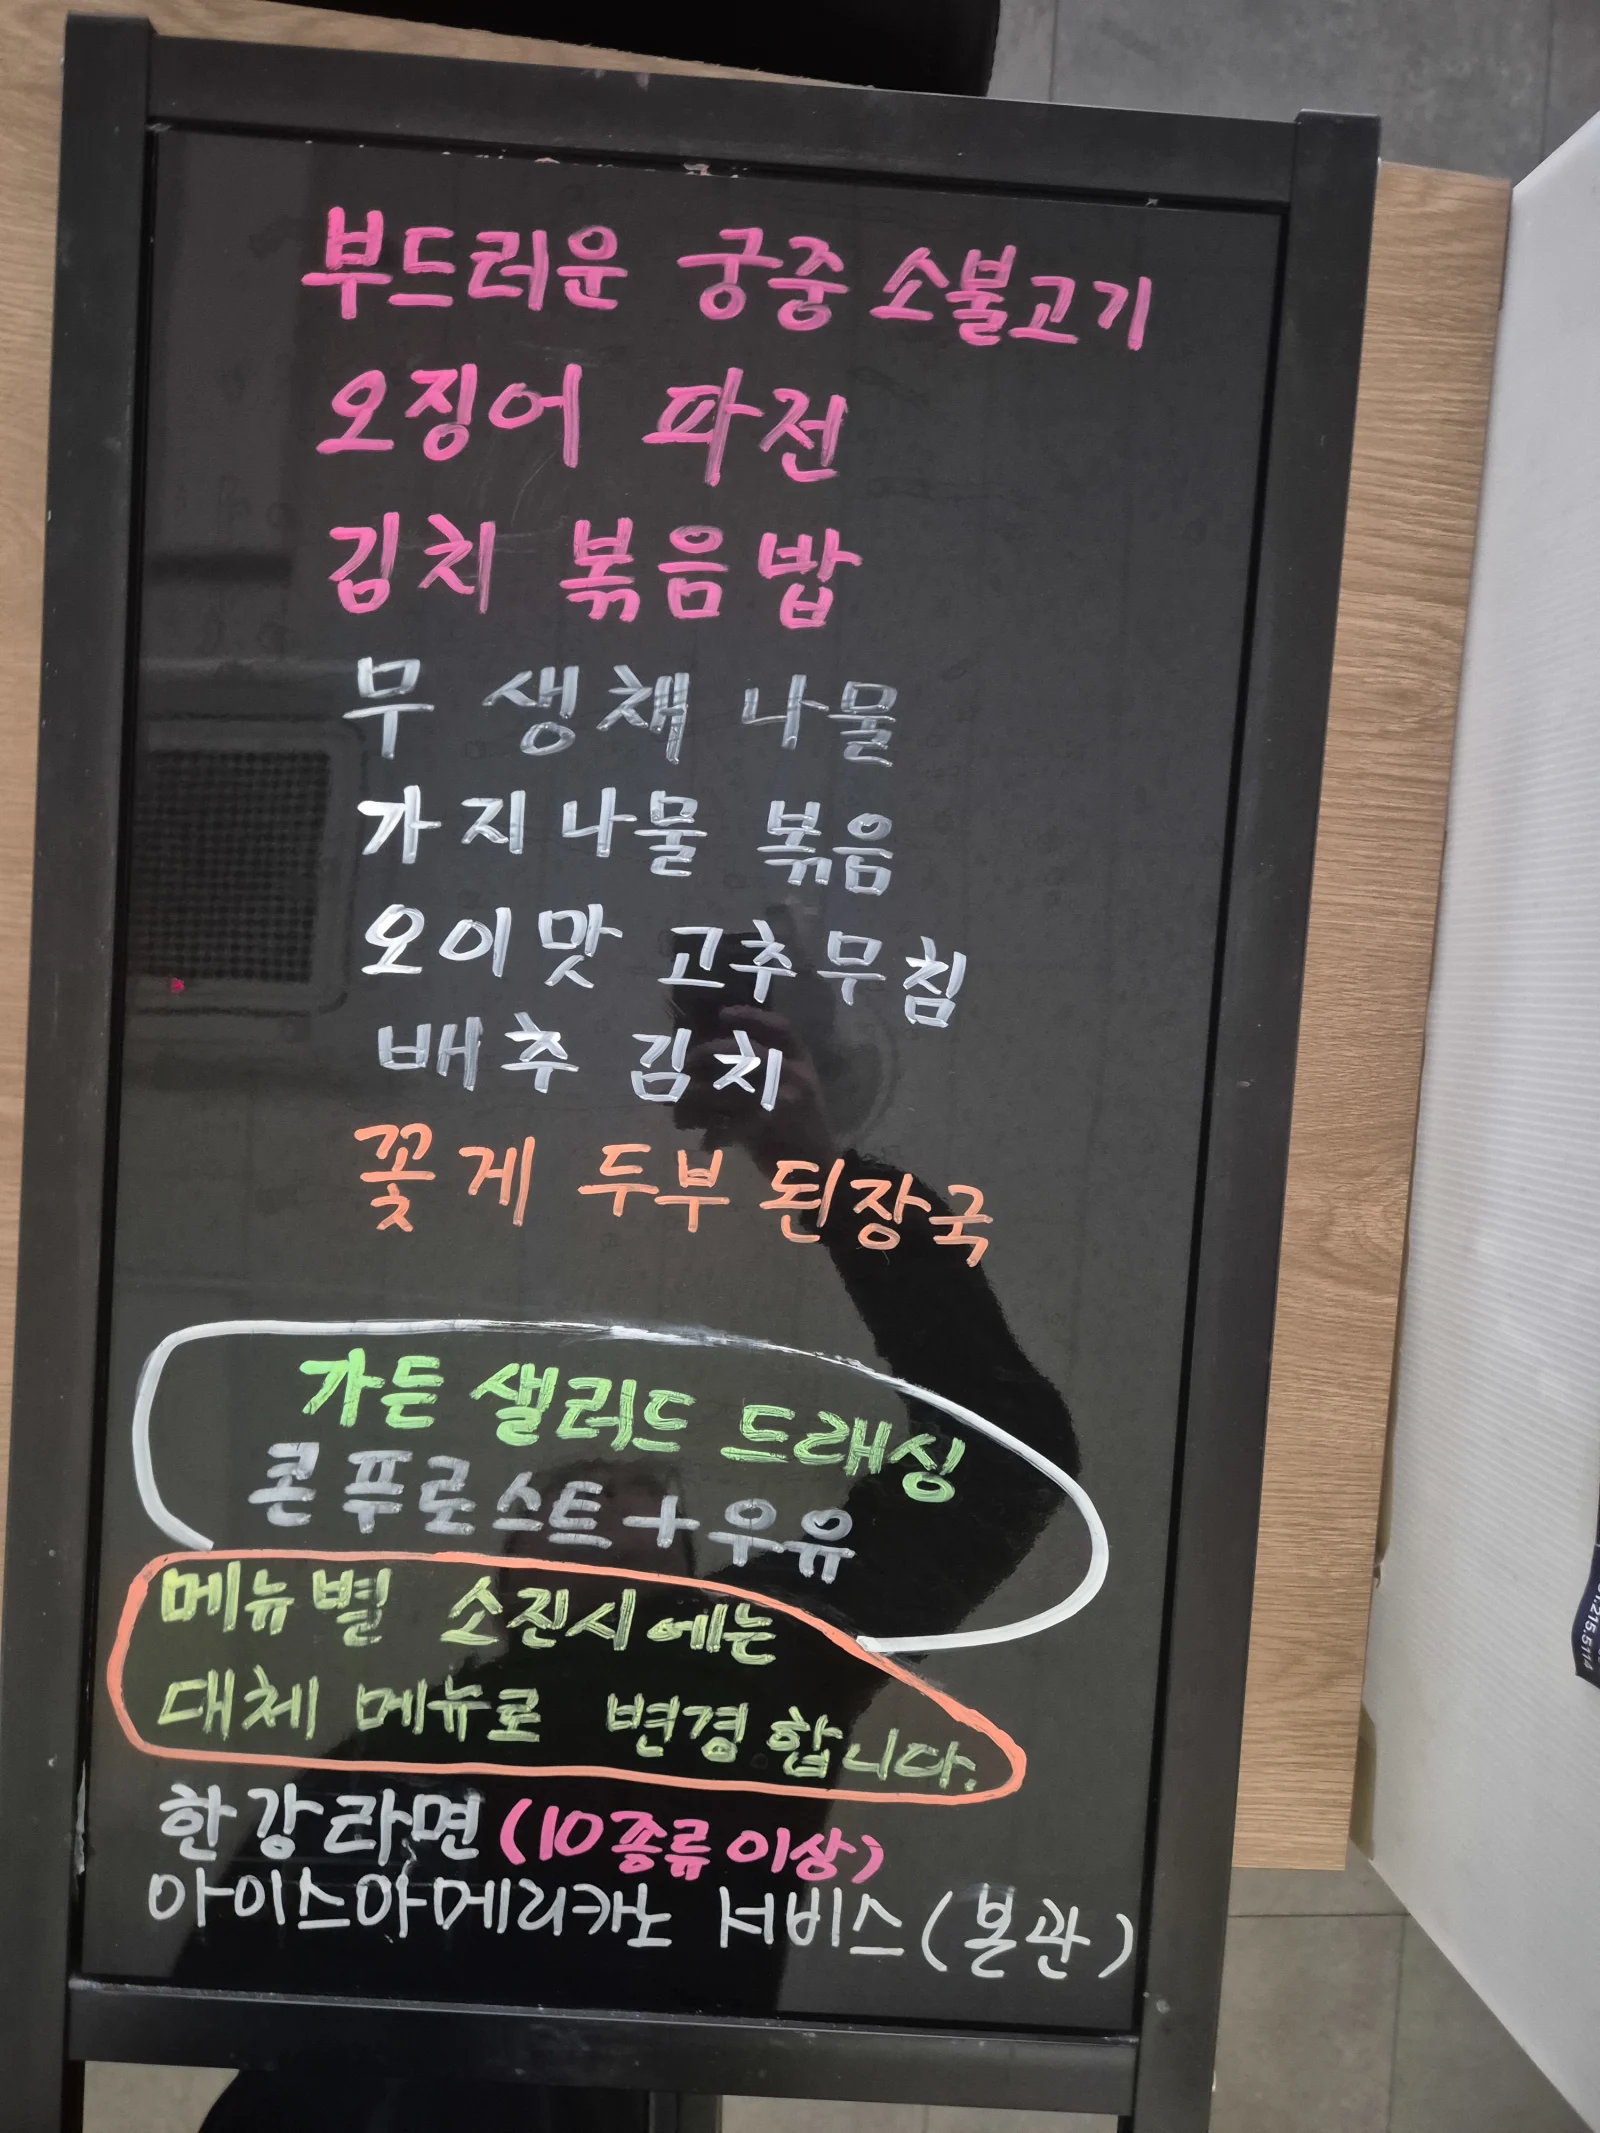 부드러운 궁중 소불고기
오징어 파전
김치 볶음밥
무 생채 나물
가지나물 볶음
오이맛 고추무침
배추 김치
꽃게 두부 된장국
가든 샐러드 드래싱
콘푸로스트+우유
메뉴별 소진시에는
대체 메뉴로 변경합니다.
한강라면 (10종류이상)
아이스아메리카노 서비스(본관)
215.5114